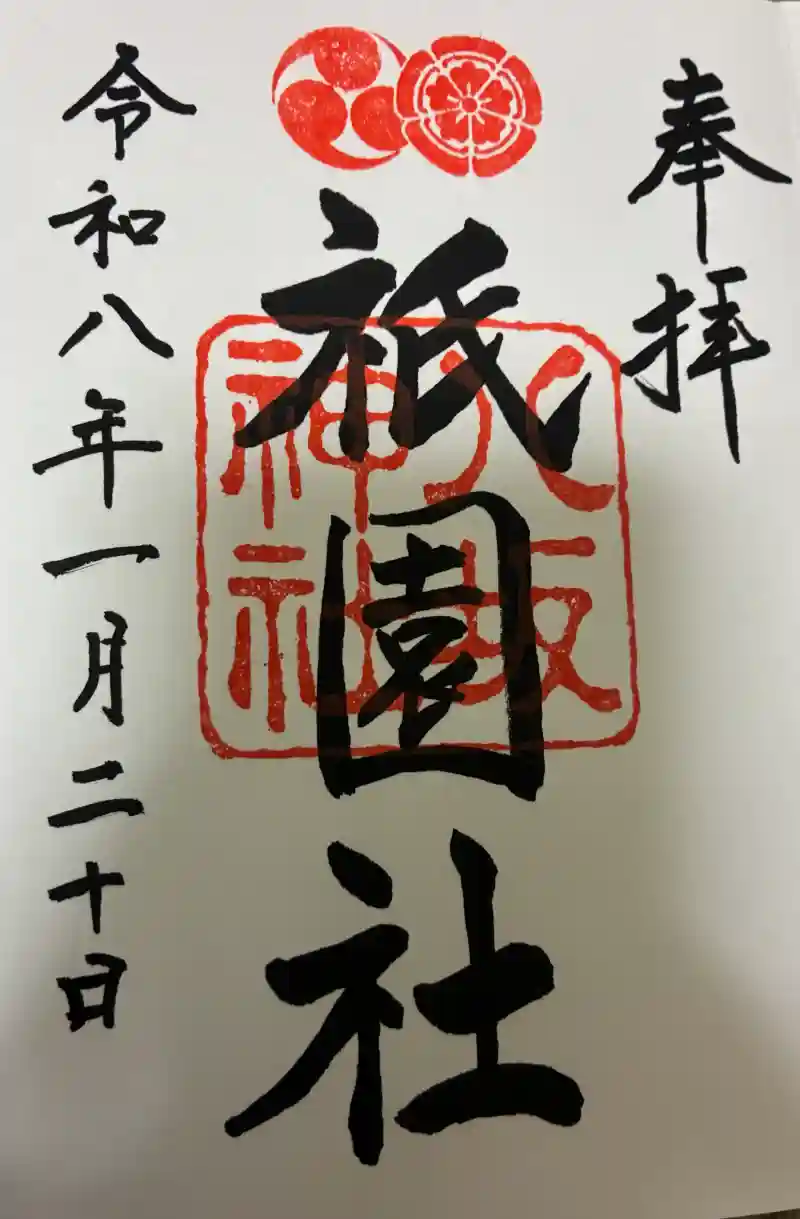 奉拝
祇園社
八坂
神社
令和八年一月二十日